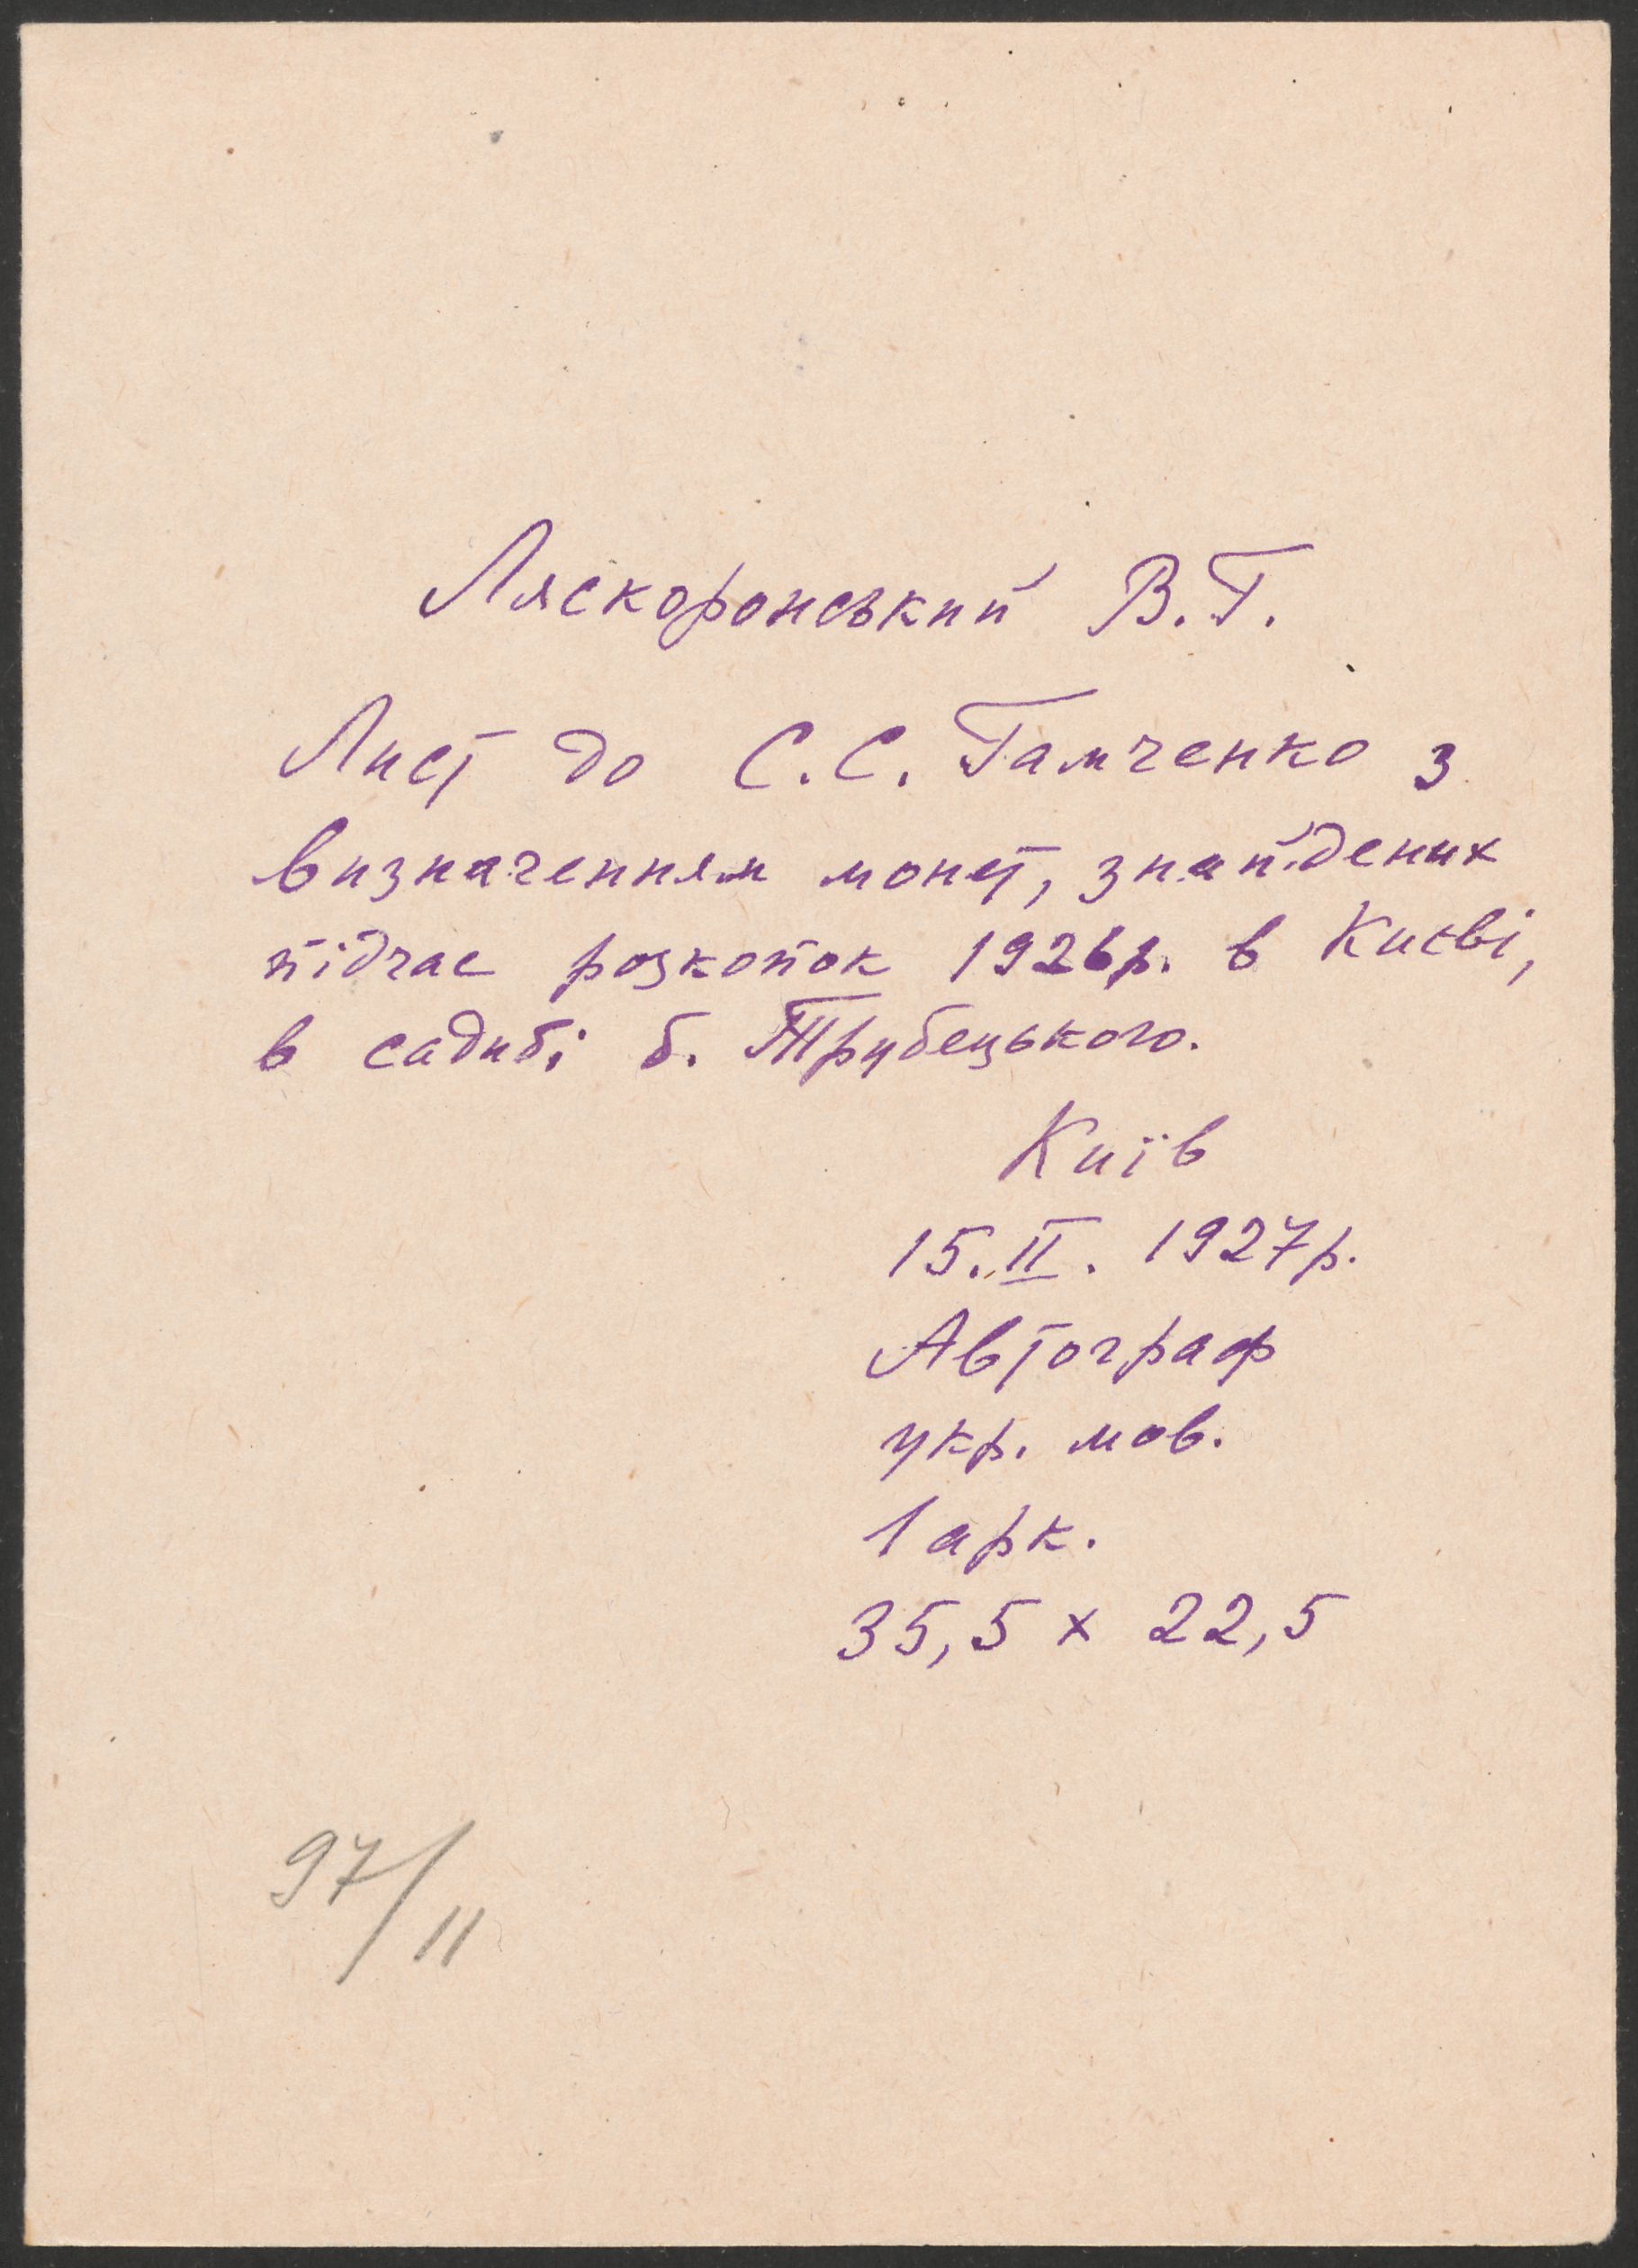 Ляскоронський В.Г.
Лист до С.С. Гамченко з
визначенням монет, знайдених
підчас розкопок 1926р. в Києві,
в садибі б. Трубецького.
Київ
15.II. 1927р.
Автограф
укр. мов.
1 арк.
35,5 x 22,5
97/11